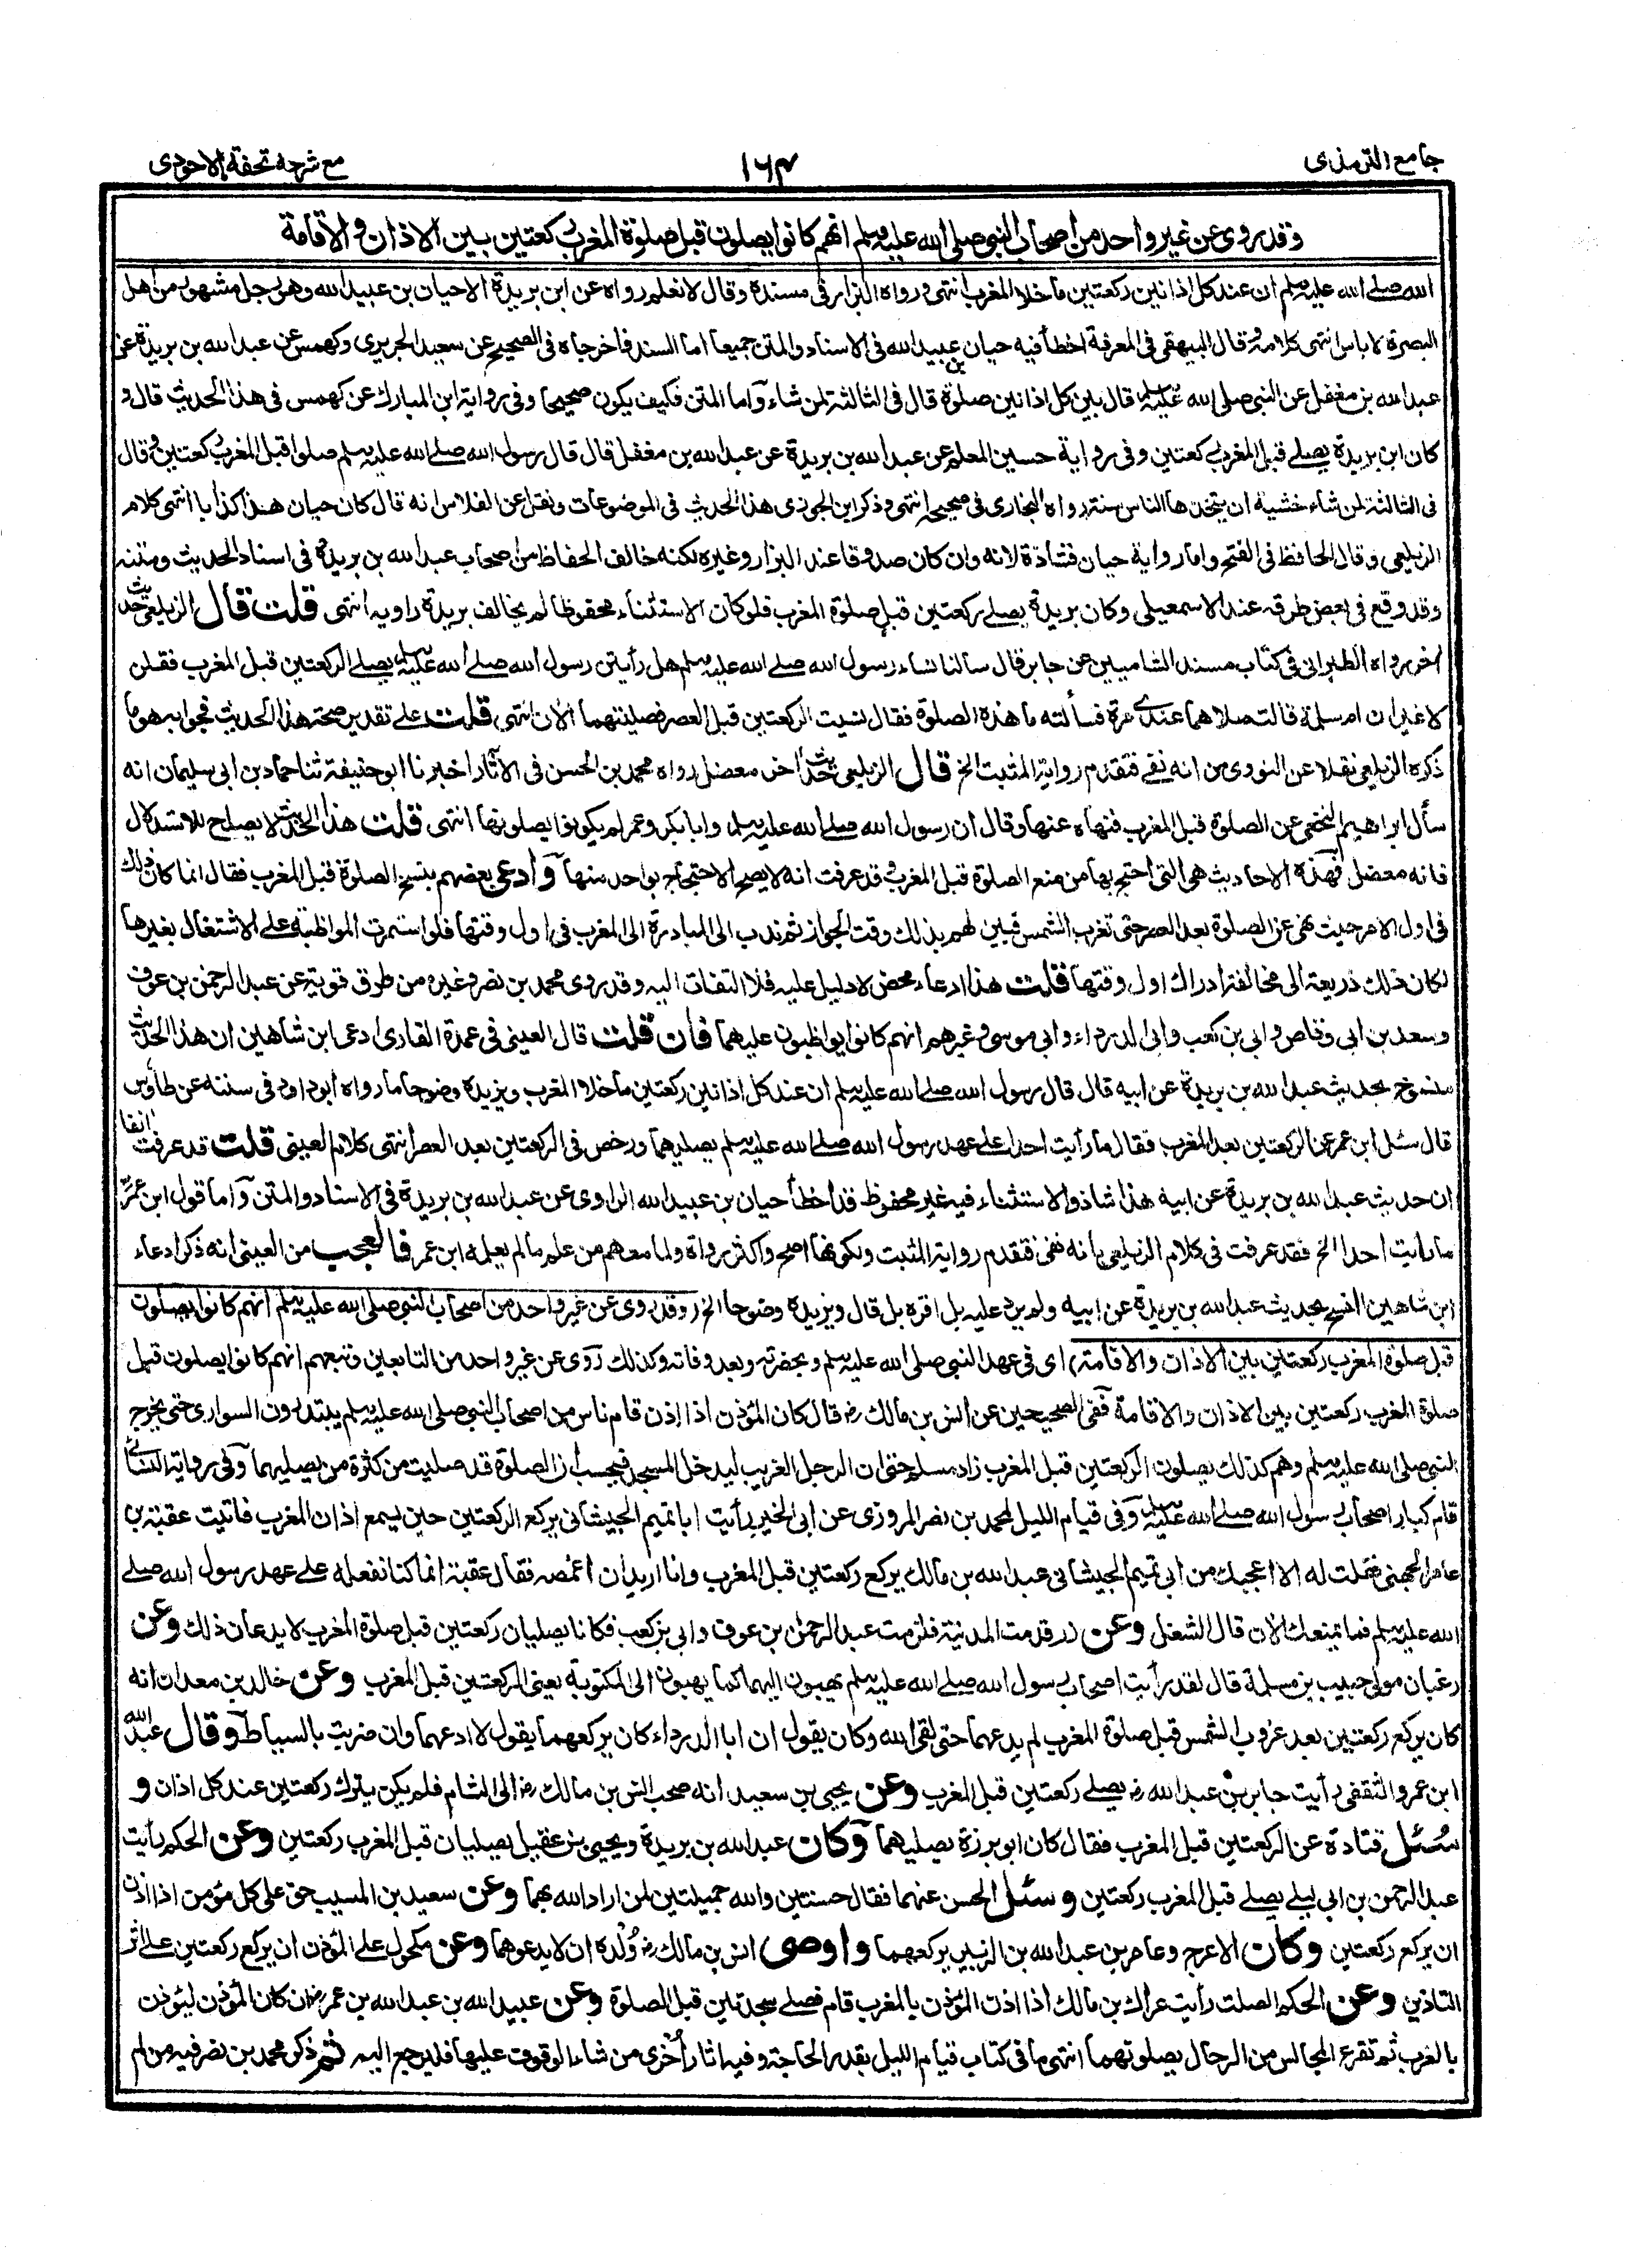 جامع الترمذى
١٦٤
مع شرحه تحفة الاحوذى
وقد روى عن غير واحد من اصحاب النبى صلى الله عليه وسلم انهم كانوا يصلون قبل صلوة المغرب ركعتين بين الاذان والاقامة
الله صلے الله عليه وسلم ان عند كل اذانين ركعتين ما خلا المغرب انتهى ورواه البزار فى مسنده وقال لا نعلم رواه عن ابن بريدة الا حيان بن عبيد الله وهو رجل مشهور من اهل
البصرة لا باس به انتهى كلامه وقال البيهقى فى المعرفة اخطأ فيه حيان بن عبيد الله فى الاسناد والمتن جميعا اما السند فاخرجاه فى الصحيح عن سعيد الجريرى وكهمس عن عبد الله بن بريدة عن
عبد الله بن مغفل عن النبى صلى الله عليه وسلم قال بين كل اذانين صلوة قال فى الثالثة لمن شاء وآما المتن فكيف يكون صحيحا وفى رواية ابن المبارك عن كهمس فى هذا الحديث قال و
كان ابن بريدة يصلے قبل المغرب ركعتين وفى رواية حسين المعلم عن عبد الله بن بريدة عن عبد الله بن مغفل قال قال رسول الله صلے الله عليه وسلم صلوا قبل المغرب ركعتين وقال
فى الثالثة لمن شاء خشية ان يتخذها الناس سنة رواه البخارى فى صحيحه انتهى وذكر ابن الجوزى هذا الحديث فى الموضوعات ونقل عن الفلاس انه قال كان حيان هذا كذابا انتهى كلام
الزيلعى وقال الحافظ فى الفتح واما رواية حيان فشاذة لانه وان كان صدوقا عند البزار وغيره لكنه خالف الحفاظ من اصحاب عبد الله بن بريدة فى اسناد الحديث ومتنه
وقد وقع فى بعض طرقه عند الاسمعيلى وكان بريدة يصلے ركعتين قبل صلوة المغرب فلو كان الاستثناء محفوظا لم يخالف بريدة راويه انتهى قلت قال الزيلعى حديث
اخر رواه الطبرانى فى كتاب مسند الشاميين عن جابر قال سالنا نساء رسول الله صلے الله عليه وسلم هل رأيتن رسول الله صلے الله عليه وسلم يصلے الركعتين قبل المغرب فقلن
لا غير ان ام سلمة قالت صلاهما عندى مرة فسألته ما هذه الصلوة فقال نسيت الركعتين قبل العصر فصليتهما الان انتهى قلت على تقدير صحة هذا الحديث فجوابه هو ما
ذكره الزيلعى نقلا عن النووى من انه نفے فتقدم رواية المثبت الخ قال الزيلعى حديث اخر معضل رواه محمد بن الحسن فى الآثار اخبرنا ابو حنيفة ثنا حماد بن ابى سليمان انه
سأل ابراهيم النخعى عن الصلوة قبل المغرب فنهاه عنها وقال ان رسول الله صلے الله عليه وسلم وابا بكر وعمر لم يكونوا يصلونها انتهى قلت هذا الحديث لا يصلح للاستدلال
فانه معضل فهذه الاحاديث هى التى احتج بها من منع الصلوة قبل المغرب وقد عرفت انه لا يصح الاحتجاج بواحد منها وآدعى بعضهم بنسخ الصلوة قبل المغرب فقال انما كان ذلك
فى اول الامر حيث نهى عن الصلوة بعد العصر حتى تغرب الشمس فبين لهم بذلك وقت الجواز ثم ندب الى المبادرة الى المغرب فى اول وقتها فلو استمرت المواظبة على الاشتغال بغيرها
لكان ذلك ذريعة الى مخالفة ادراك اول وقتها قلت هذا ادعاء محض لا دليل عليه فلا التفات اليه وقد روى محمد بن نصر وغيره من طرق قوية عن عبد الرحمن بن عوف
وسعد بن ابى وقاص وابى بن كعب وابى الدرداء وابى موسى وغيرهم انهم كانوا يواظبون عليهما فان قلت قال العينى فى عمدة القارى ادعى ابن شاهين ان هذا الحديث
منسوخ بحديث عبد الله بن بريدة عن ابيه قال قال رسول الله صلے الله عليه وسلم ان عند كل اذانين ركعتين ما خلا المغرب ويزيده وضوحا ما رواه ابو داود فى سننه عن طاؤس
قال سئل ابن عمر عن الركعتين بعد المغرب فقال ما رأيت احدا على عهد رسول الله صلے الله عليه وسلم يصليهما ورخص فى الركعتين بعد العصر انتهى كلام العينى قلت قد عرفت انفا
ان حديث عبد الله بن بريدة عن ابيه هذا شاذ والاستثناء فيه غير محفوظ قد اخطأ حيان بن عبيد الله الراوى عن عبد الله بن بريدة فى الاسناد والمتن وآما قول ابن عمر
ما رأيت احدا الخ فقد عرفت فى كلام الزيلعى بانه نفى فتقدم رواية المثبت ولكونها اصح واكثر رواة ولما معهم من علم ما لم يعلمه ابن عمر فالعجب من العينى انه ذكر ادعاء
ابن شاهين النسخ بحديث عبد الله بن بريدة عن ابيه ولم يرد عليه بل اقره بل قال ويزيده وضوحا الخ (وقد روى عن غير واحد من اصحاب النبى صلى الله عليه وسلم انهم كانوا يصلون
قبل صلوة المغرب ركعتين بين الاذان والاقامة) اى فى عهد النبى صلى الله عليه وسلم وبحضرته وبعد وفاته وكذلك روى عن غير واحد من التابعين وتبعهم انهم كانوا يصلون قبل
صلوة المغرب ركعتين بين الاذان والاقامة ففى الصحيحين عن انس بن مالك رض قال كان المؤذن اذا اذن قام ناس من اصحاب النبى صلى الله عليه وسلم يبتدرون السوارى حتى يخرج
النبى صلى الله عليه وسلم وهم كذلك يصلون الركعتين قبل المغرب زاد مسلم حتى ان الرجل الغريب ليدخل المسجد فيحسب ان الصلوة قد صليت من كثرة من يصليهما وفى رواية النسائى
قام كبار اصحاب رسول الله صلے الله عليه وسلم وفى قيام الليل لمحمد بن نصر المروزى عن ابى الخير رأيت ابا تميم الجيشانى يركع الركعتين حين يسمع اذان المغرب فاتيت عقبة بن
عامر الجهنى فقلت له الا اعجبك من ابى تميم الجيشانى عبد الله بن مالك يركع ركعتين قبل المغرب وانا اريد ان اغمصه فقال عقبة انما كنا نفعله على عهد رسول الله صلے
الله عليه وسلم فما يمنعك الان قال الشغل وعن زر قدمت المدينة فلزمت عبد الرحمن بن عوف وابى بن كعب فكانا يصليان ركعتين قبل صلوة المغرب لا يدعان ذلك وعن
رغبان مولى حبيب بن مسلمة قال لقد رأيت اصحاب رسول الله صلے الله عليه وسلم يهبون اليهما كما يهبون الى المكتوبة يعنى الركعتين قبل المغرب وعن خالد بن معدان انه
كان يركع ركعتين بعد غروب الشمس قبل صلوة المغرب لم يدعهما حتى لقى الله وكان يقول ان ابا الدرداء كان يركعهما يقول لا ادعهما وان ضربت بالسياط وقال عبد الله
ابن عمرو الثقفى رأيت جابر بن عبد الله رض يصلے ركعتين قبل المغرب وعن يحيى بن سعيد انه صحب انس بن مالك رض الى الشام فلم يكن يترك ركعتين عند كل اذان و
سئل قتادة عن الركعتين قبل المغرب فقال كان ابو برزة يصليهما وكان عبد الله بن بريدة ويحيى بن عقيل يصليان قبل المغرب ركعتين وعن الحكم رأيت
عبد الرحمن بن ابى ليلے يصلے قبل المغرب ركعتين وسئل الحسن عنهما فقال حسنتين والله جميلتين لمن اراد الله بهما وعن سعيد بن المسيب حق على كل مؤمن اذا اذن
ان يركع ركعتين وكان الاعرج وعامر بن عبد الله بن الزبير يركعهما واوصى انس بن مالك رض ولده ان لا يدعوهما وعن مكحول على المؤذن ان يركع ركعتين على اثر
التاذين وعن الحكم الصلت رأيت عراك بن مالك اذا اذن المؤذن بالمغرب قام فصلے سجدتين قبل الصلوة وعن عبيد الله بن عبد الله بن عمر رض ان كان المؤذن ليؤذن
بالمغرب ثم تقرع المجالس من الرجال يصلونهما انتهى ما فى كتاب قيام الليل بقدر الحاجة وفيه اثار أخرى من شاء الوقوف عليها فليرجع اليه ثم ذكر محمد بن نصر فيه من لم